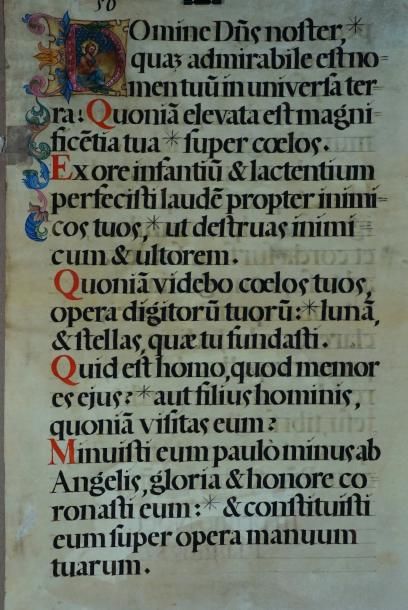 50
Domine Dn̄s noster, *
quaz admirabile est no-
men tuū in universa ter-
ra! Quoniā elevata est magni-
ficētia tua * super cœlos.
Ex ore infantiū & lactentium
perfecisti laudē propter inimi-
cos tuos, * ut destruas inimi
cum & ultorem.
Quoniā videbo cœlos tuos,
opera digitorū tuorū: * lunā,
& stellas, quæ tu fundasti.
Quid est homo, quod memor
es ejus? * aut filius hominis,
quoniā visitas eum?
Minuisti eum paulò minus ab
Angelis, gloria & honore co
ronasti eum: * & constituisti
eum super opera manuum
tuarum.